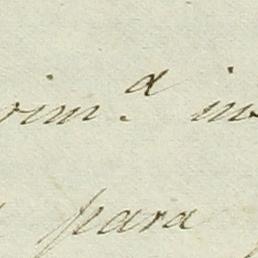 rim.ª in
para